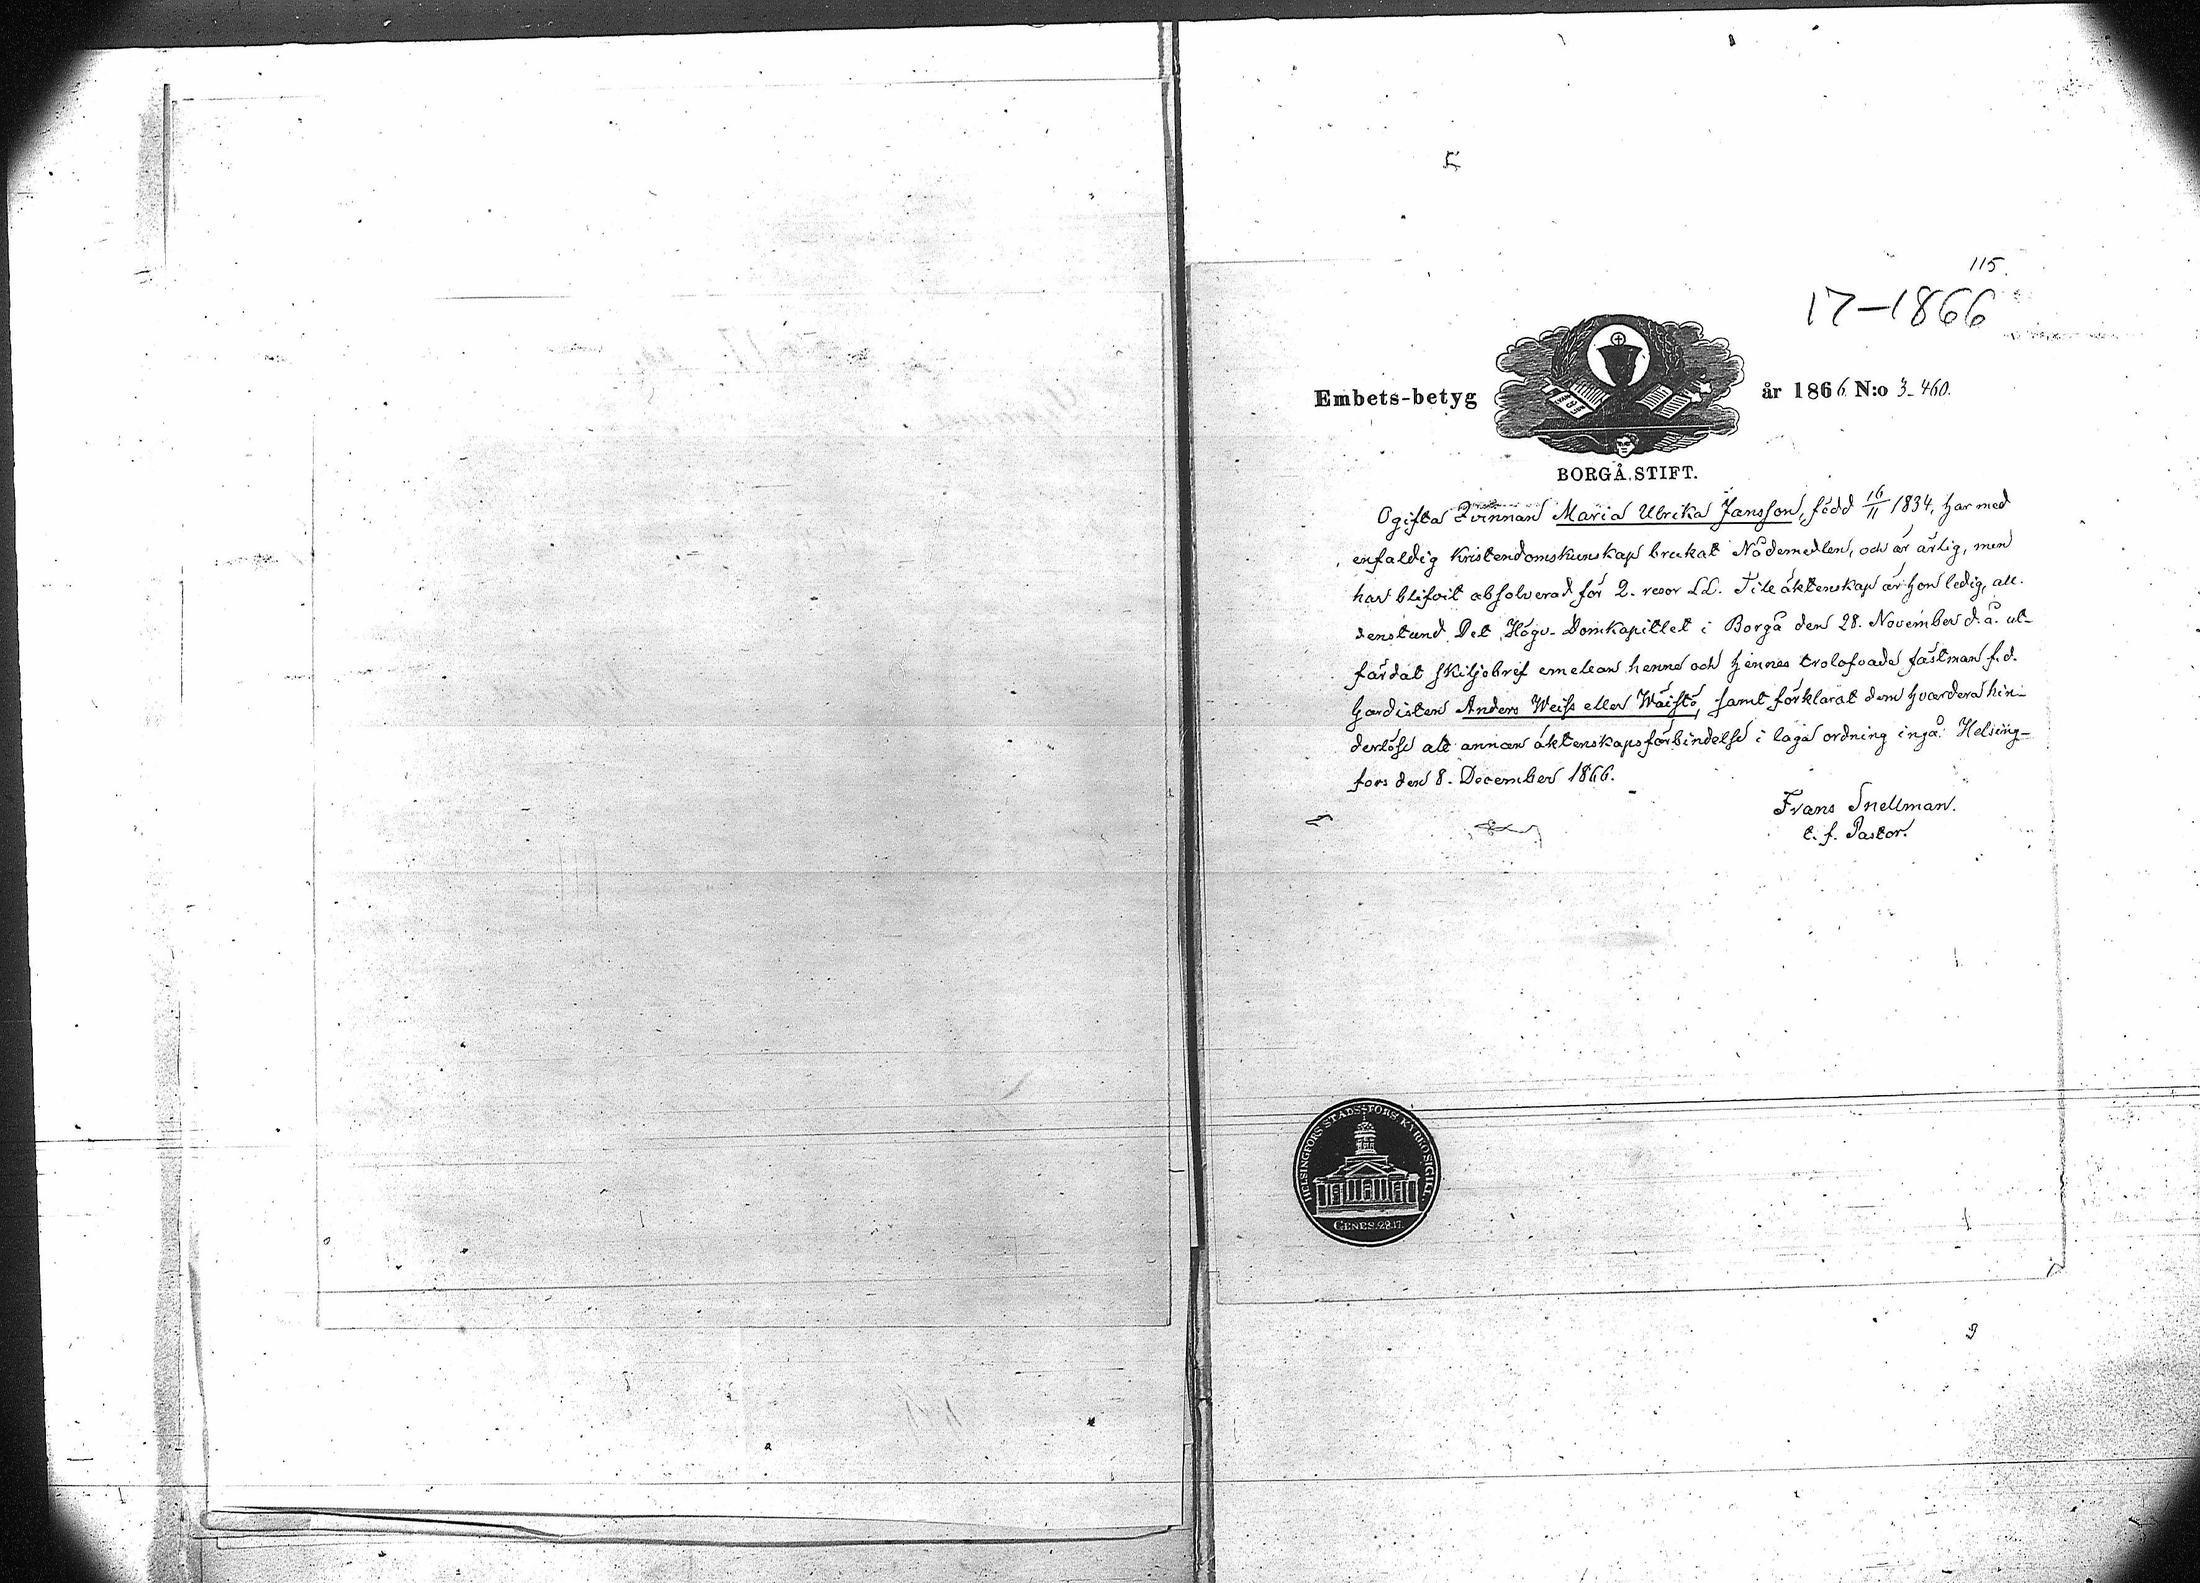 115.
17-1866
Embets-betyg år 1866 N:o 3-460.
BORGÅ STIFT.
Ogifta Qvinnan Maria Ulrika Jansson, född 16/11 1834, har med
enfaldig kristendomskunskap brukat Nådemedlen, och är ärlig, men
har blifvit absolverad för 2. resor LL. Till äktenskap är hon ledig, all-
denstund Det Högv. Domkapitlet i Borgå den 28. November d.å. ut-
färdat skiljobref emellan henne och hennes trolofvade fästman f.d.
Gardisten Anders Weiss eller Wäistö, samt förklarat dem hvardera hin-
derlöse att annan äktenskapsförbindelse i laga ordning ingå. Helsing-
fors den 8. December 1866.
Frans Snellman.
t. f. Pastor.
HELSINGFORS STADS-FÖRS: KYRKOSIGILL.
GENES. 28.17.